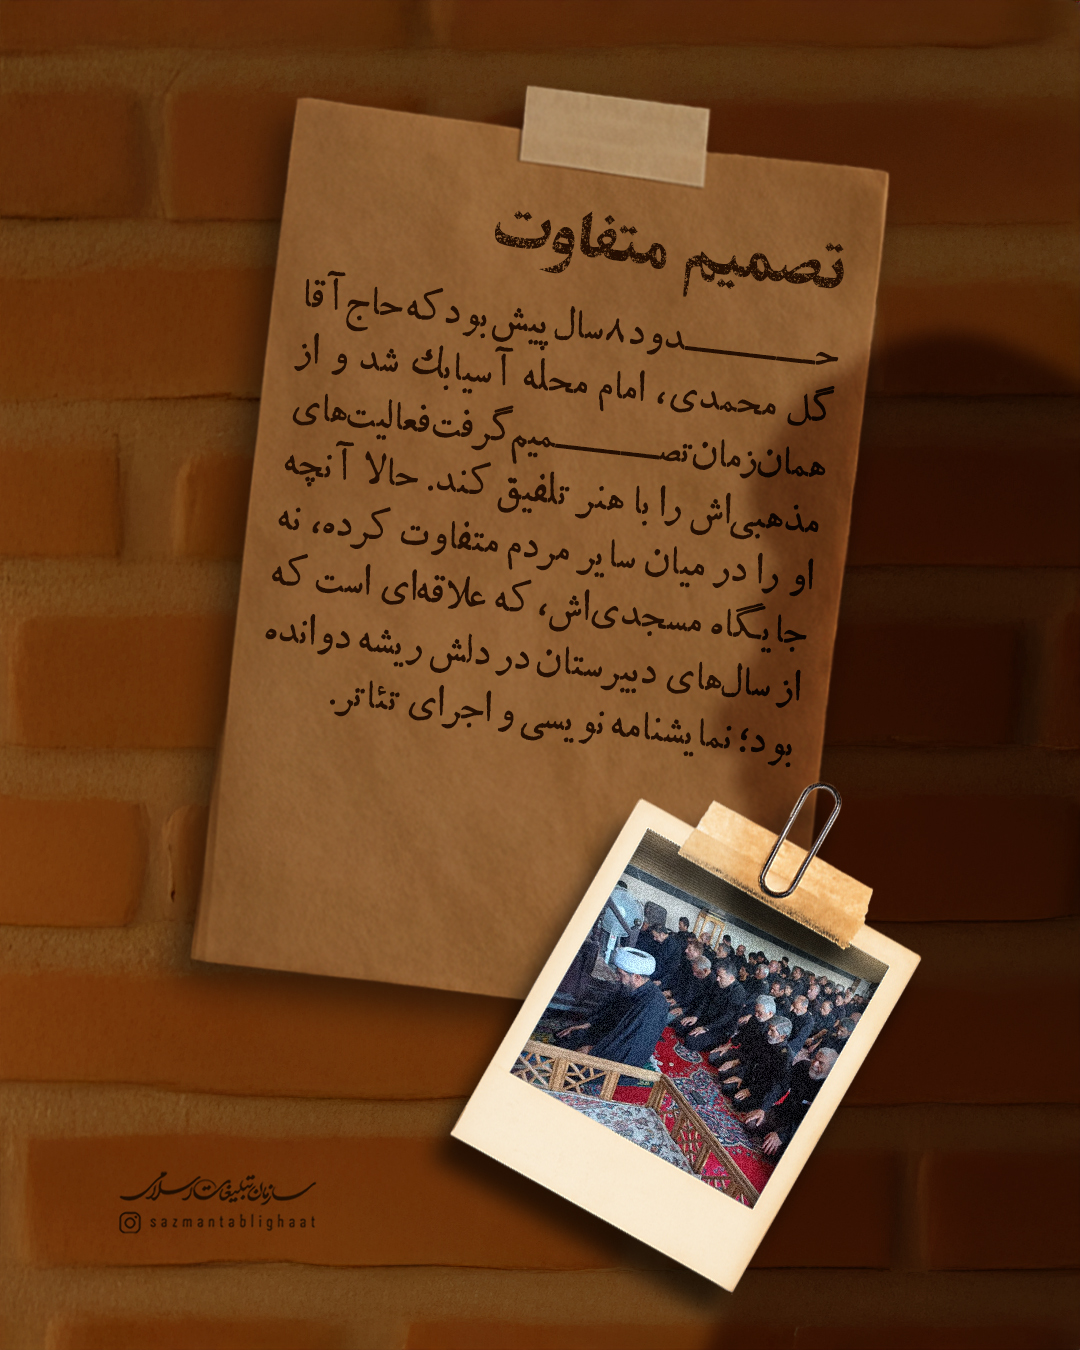 تصمیم متفاوت
حـــــدود ۸ سال پیش بود که حاج آقا
گل محمدی، امام محله آسیابك شد و از
همان زمان تصـــــمیم گرفت فعالیت‌های
مذهبی‌اش را با هنر تلفیق کند. حالا آنچه
او را در میان سایر مردم متفاوت کرده، نه
جایگاه مسجدی‌اش، که علاقه‌ای است که
از سال‌های دبیرستان در دلش ریشه دوانده
بود؛ نمایشنامه نویسی و اجرای تئاتر.
سازمان تبلیغات اسلامی
sazmantablighaat